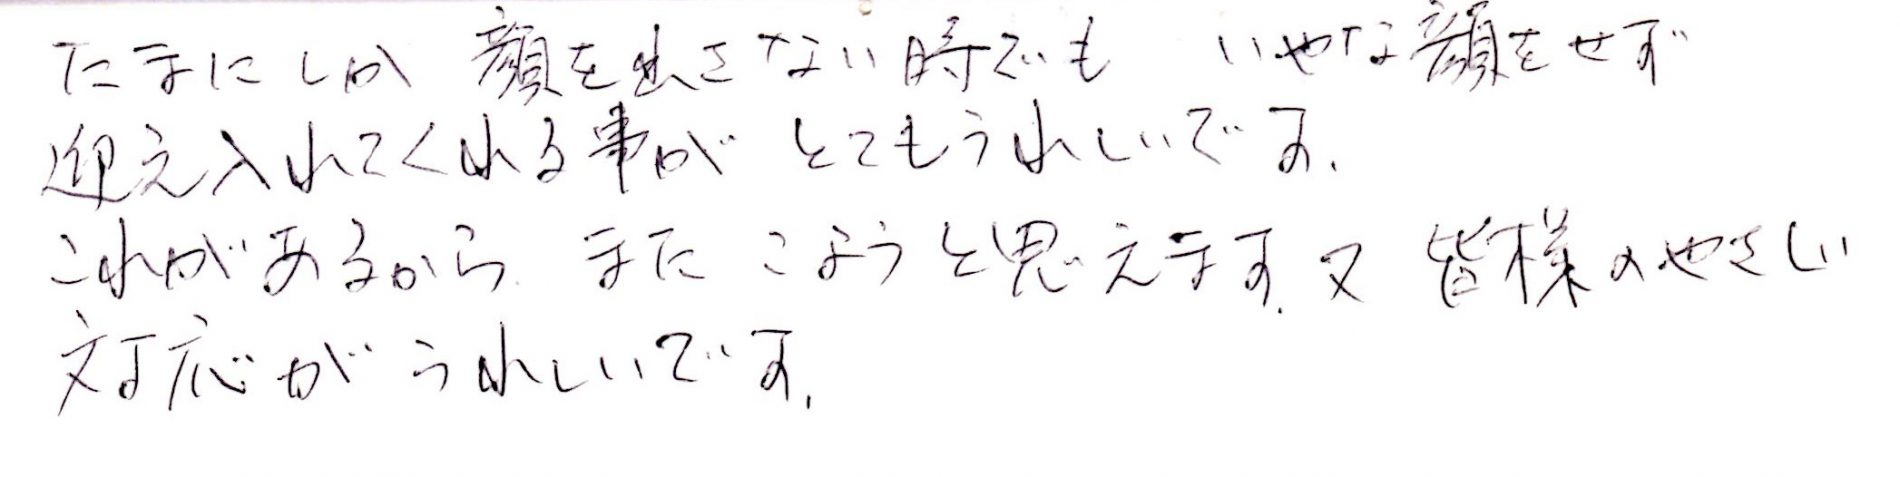 たまにしか 顔を出さない時でも いやな顔をせず
迎え入れてくれる事が とてもうれしいです.
これがあるから また こようと思えます. 又 皆様のやさしい
対応が うれしいです.